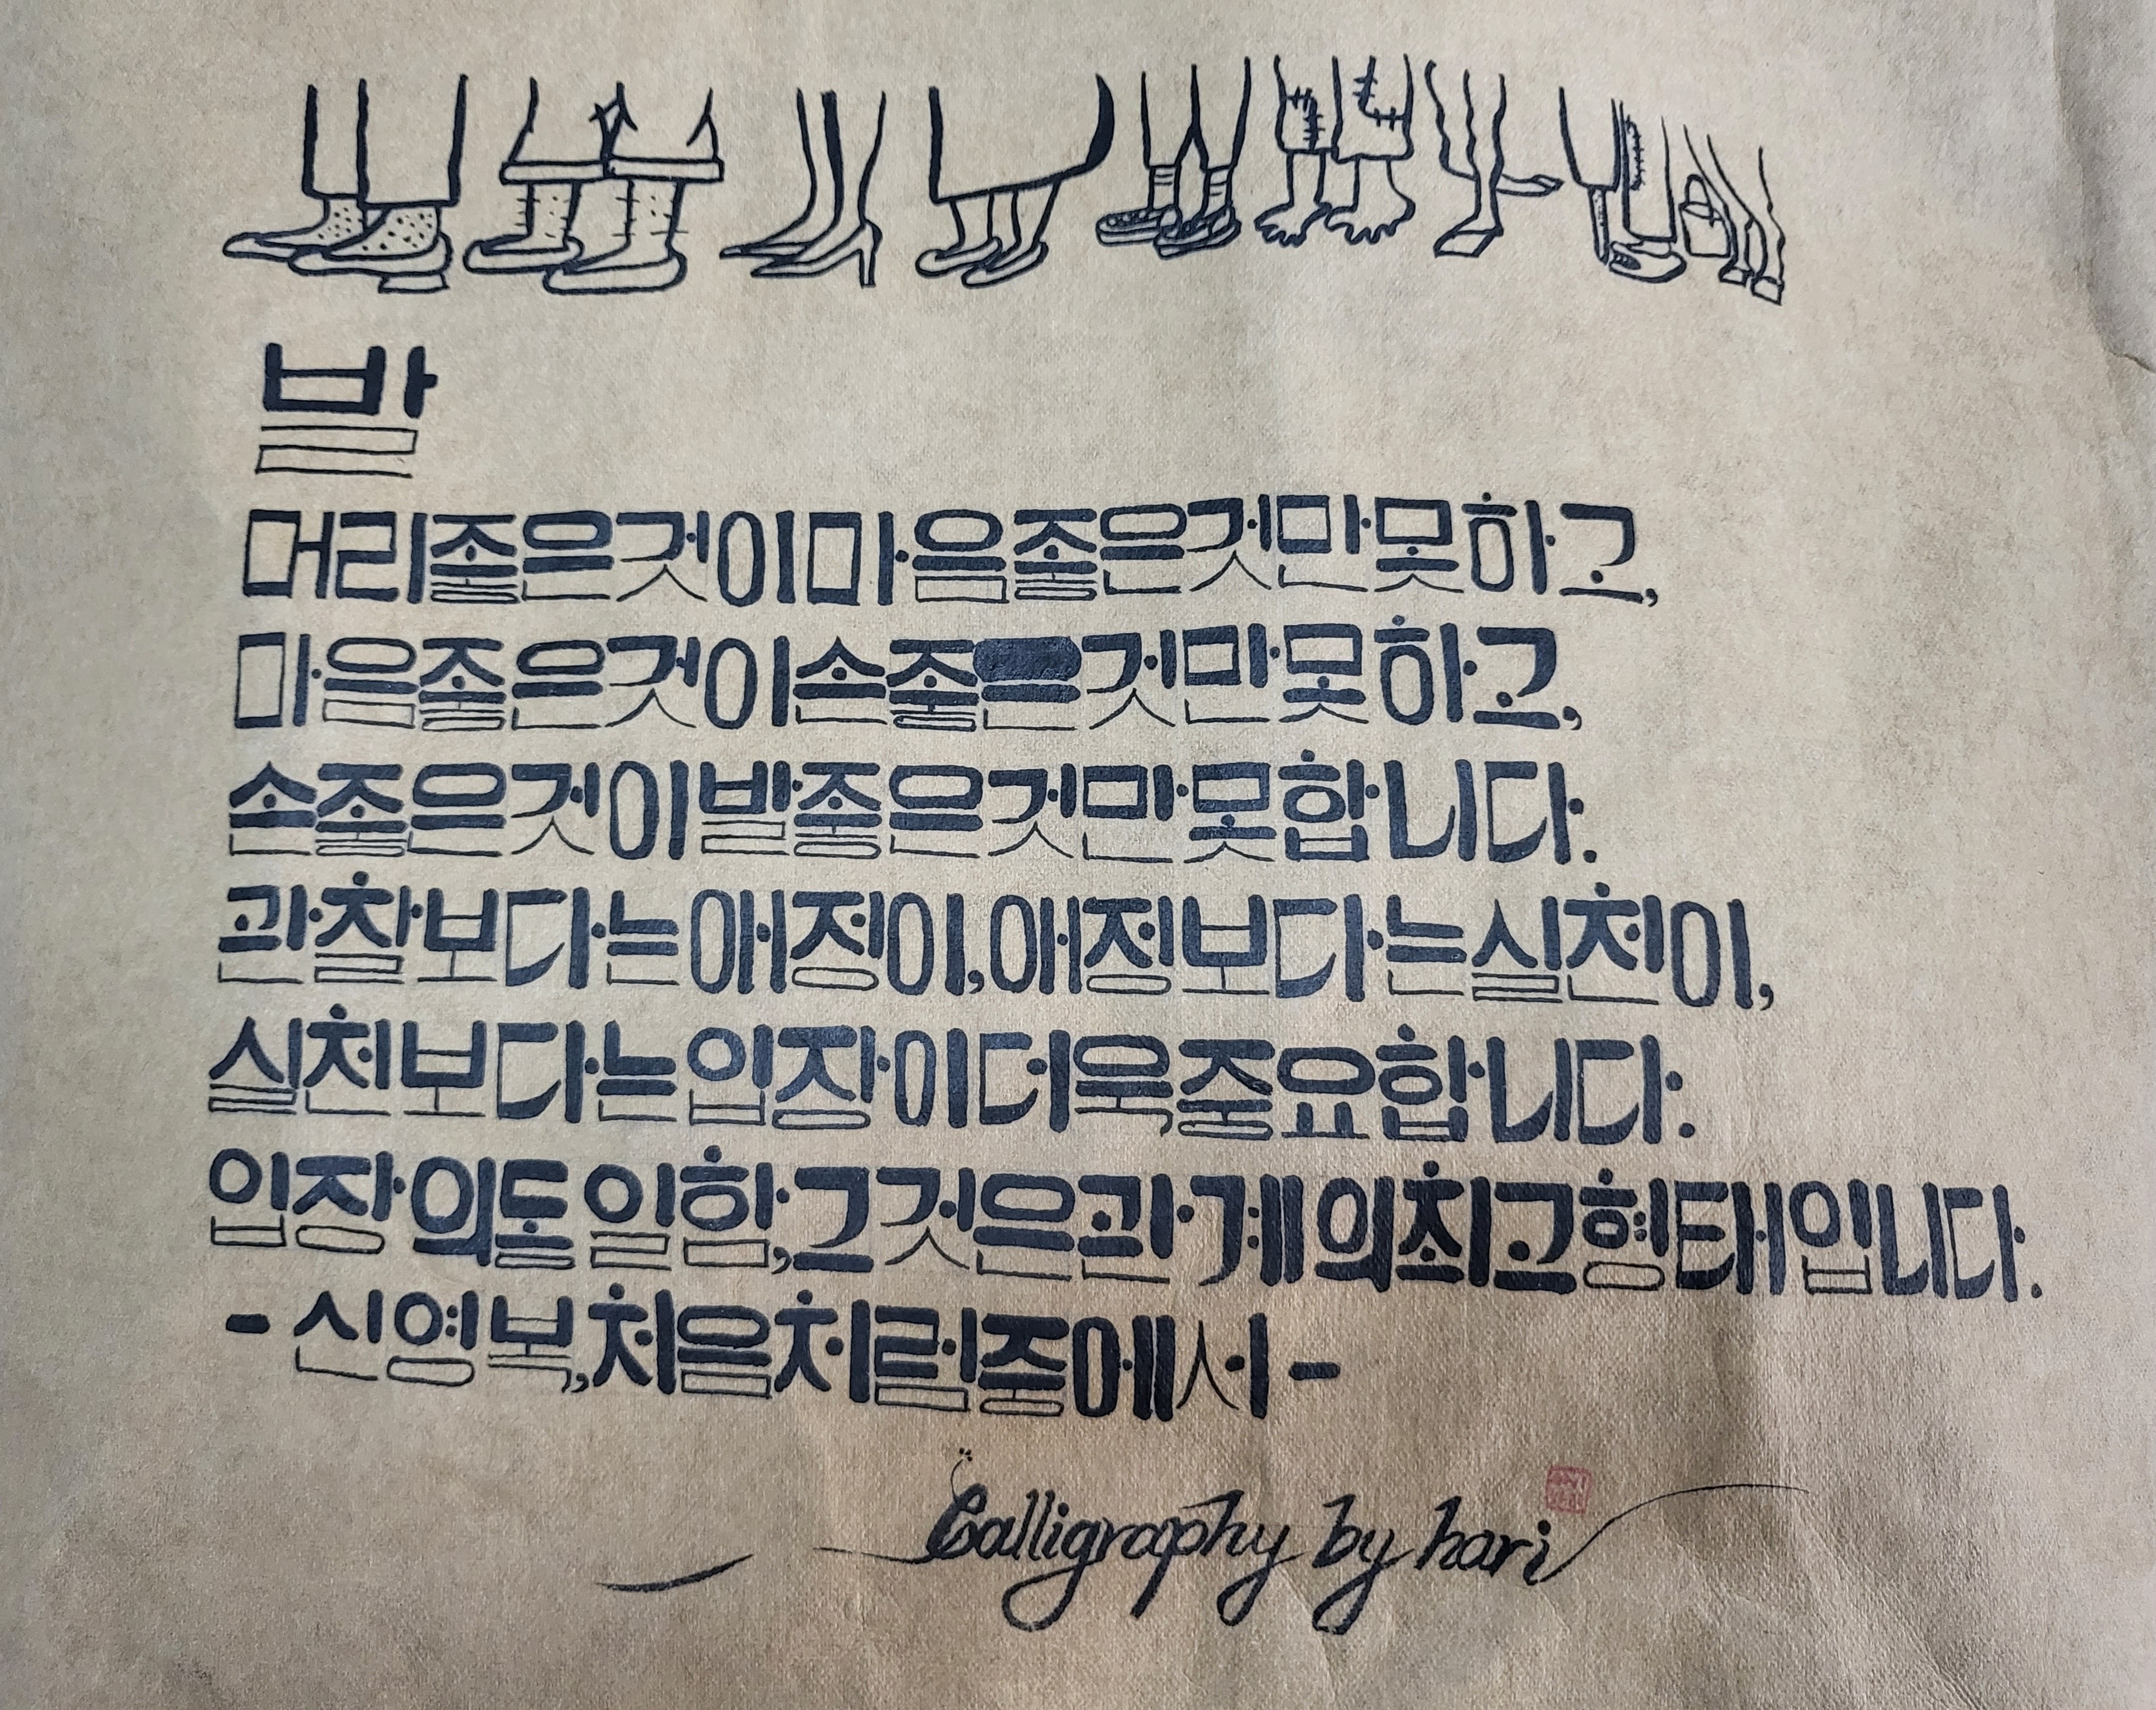 발
머리좋은것이마음좋은것만못하고,
마음좋은것이손좋은것만못하고,
손좋은것이발좋은것만못합니다.
관찰보다는애정이,애정보다는실천이,
실천보다는입장이더욱중요합니다.
입장의동일함,그것은관계의최고형태입니다.
-신영복,처음처럼중에서-
Calligraphy by hari